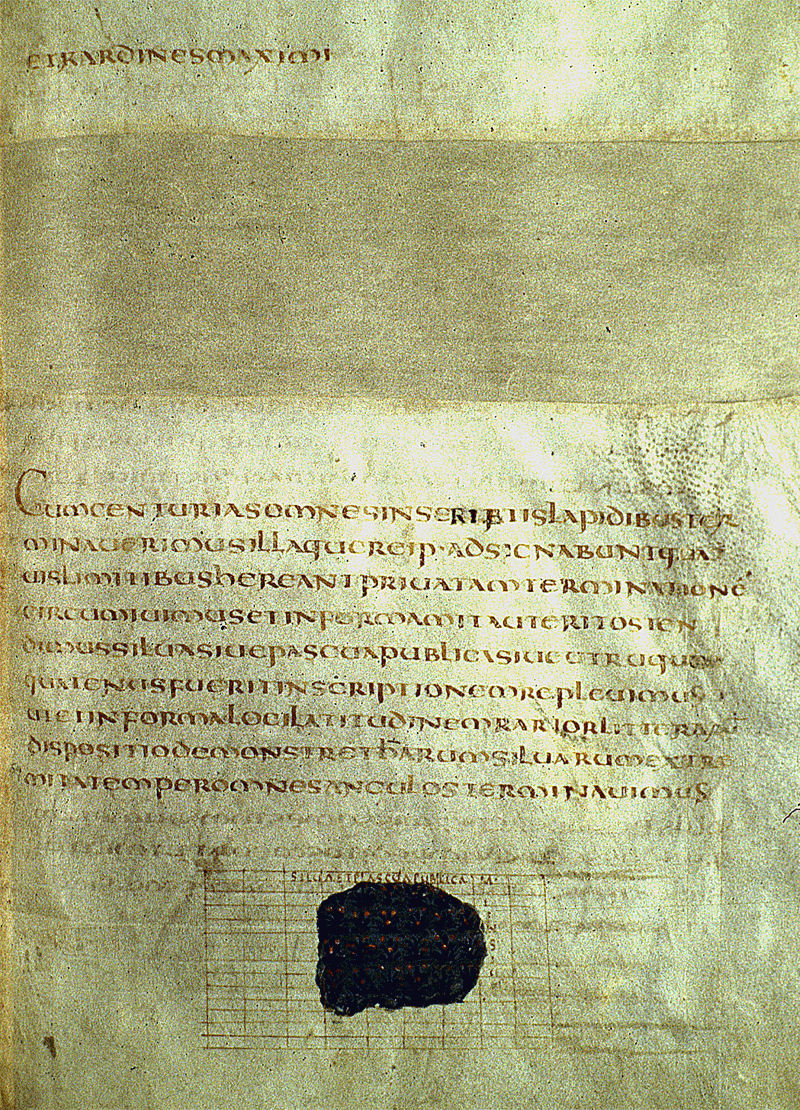 ETKARDINESMAXIMI
CUMCENTURIASOMNESINSCRIBTISLAPIDIBUSTER
MINAUERIMUSILLAQUEREIP·ADSIGNABUNTQUA
UISLIMITIBUSHEREANTPRIUATAMTERMINATIONE
CIRCUMIUIMUSETINFORMAMITAUTERITOSTEN
DIMUSSILUASIUEPASCUAPUBLICASIUEUTRUQUE
QUATENUSFUERITINSCRIPTIONEMREPLEUIMUS
UTETINFORMALOCILATITUDINEMRARIORLITTERARŪ
DISPOSITIODEMONSTRETHARUMSILUARUMEXTRE
MITATEMPEROMNESANGULOSTERMINAUIMUS
SILUAETPASCUAPUBLICA